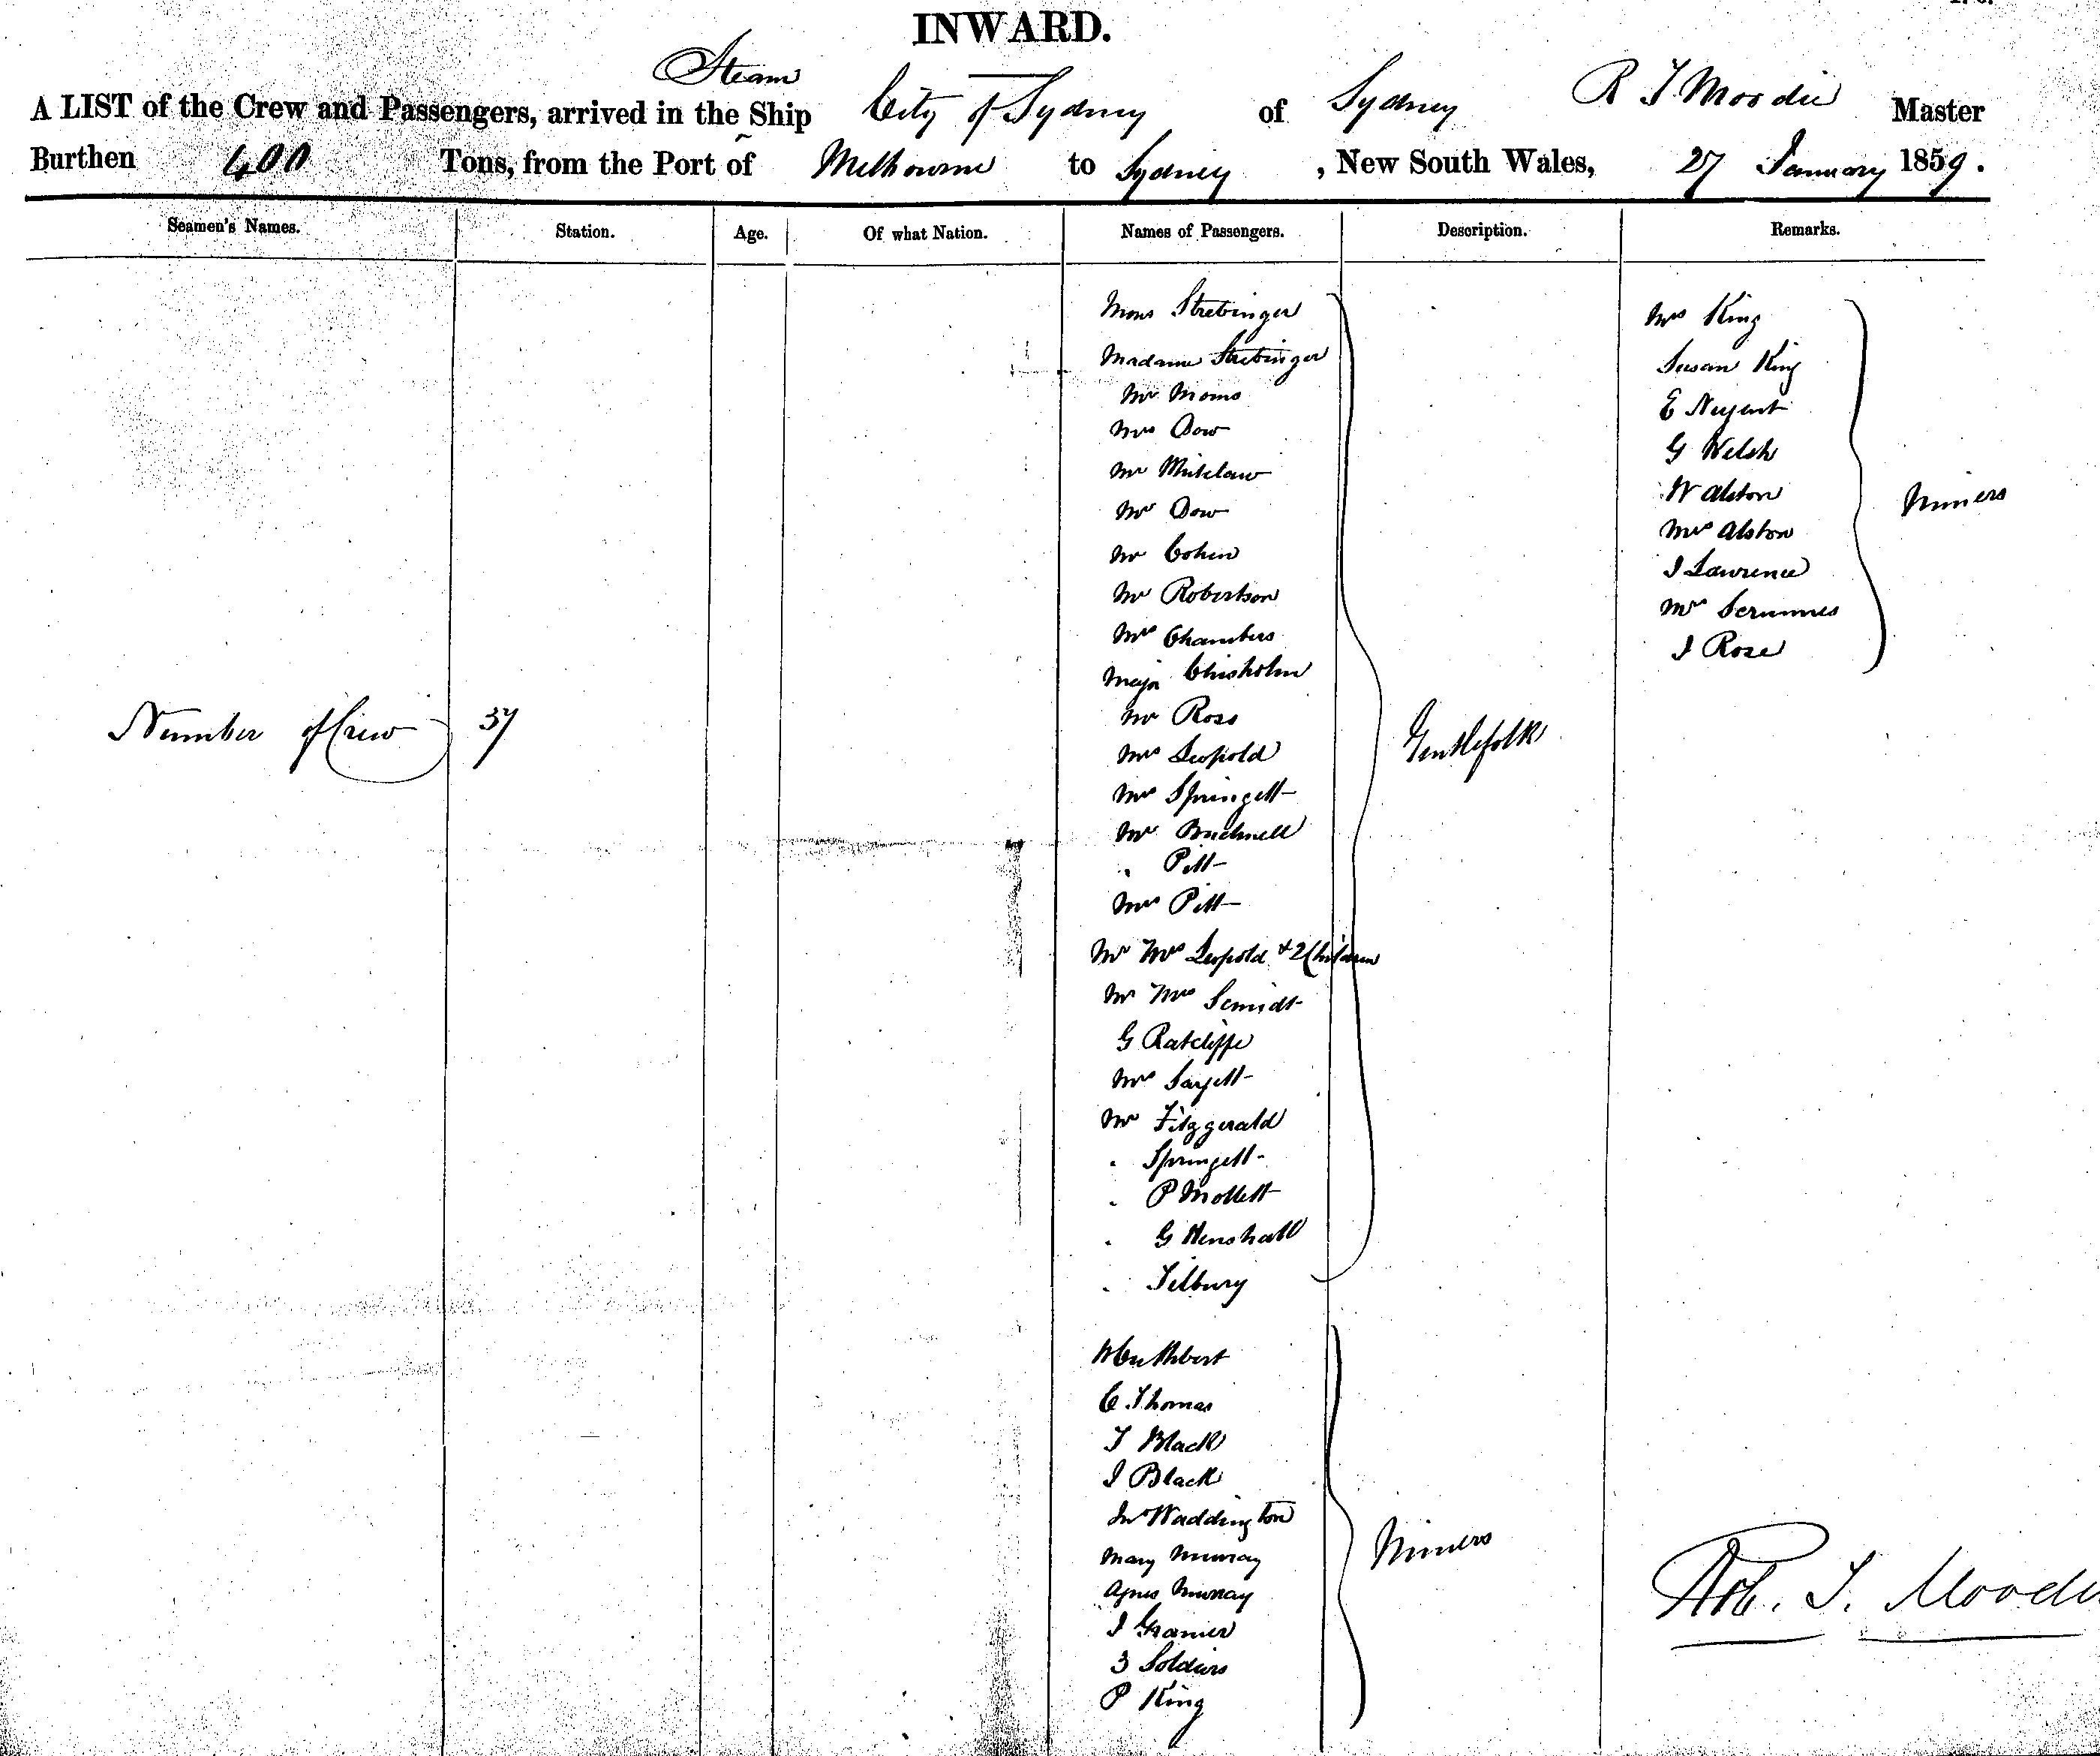 INWARD.
Steam
A LIST of the Crew and Passengers, arrived in the Ship City of Sydney of Sydney R T Moodie Master
Burthen 400 Tons, from the Port of Melbourne to Sydney, New South Wales, 27 January 1859.
Seamen's Names. Station. Age. Of what Nation. Names of Passengers. Description. Remarks.
Mons Strebinger
Madame Strebinger
Mr
Mrs Dow
Mr
Mr Dow
Mr Cohen
Mr Robertson
Mrs Chambers
Major Chisholm
Mr Ross
Mrs Leopold
Mrs Springett
Mr
" Pitt
Mrs Pitt
Mr Mrs Leopold & 2 Children
Mr Mrs Scmidt
G Ratcliffe
Mrs
Mr Fitzgerald
" Springett
" P Mollett
" G Henshall
" Tilbury
Gentlefolk
Number of Crew 37
W Cuthbert
C Thomas
T Black
J Black
Jno Waddington
Mary Murray
Agnes Murray
J
3 Soldiers
P King
Miners
Mrs King
Susan King
E Nugent
G Welsh
W Alston
Mrs Alston
J Lawrence
Mr
J Rose
Miners
Rob. T. Moodie